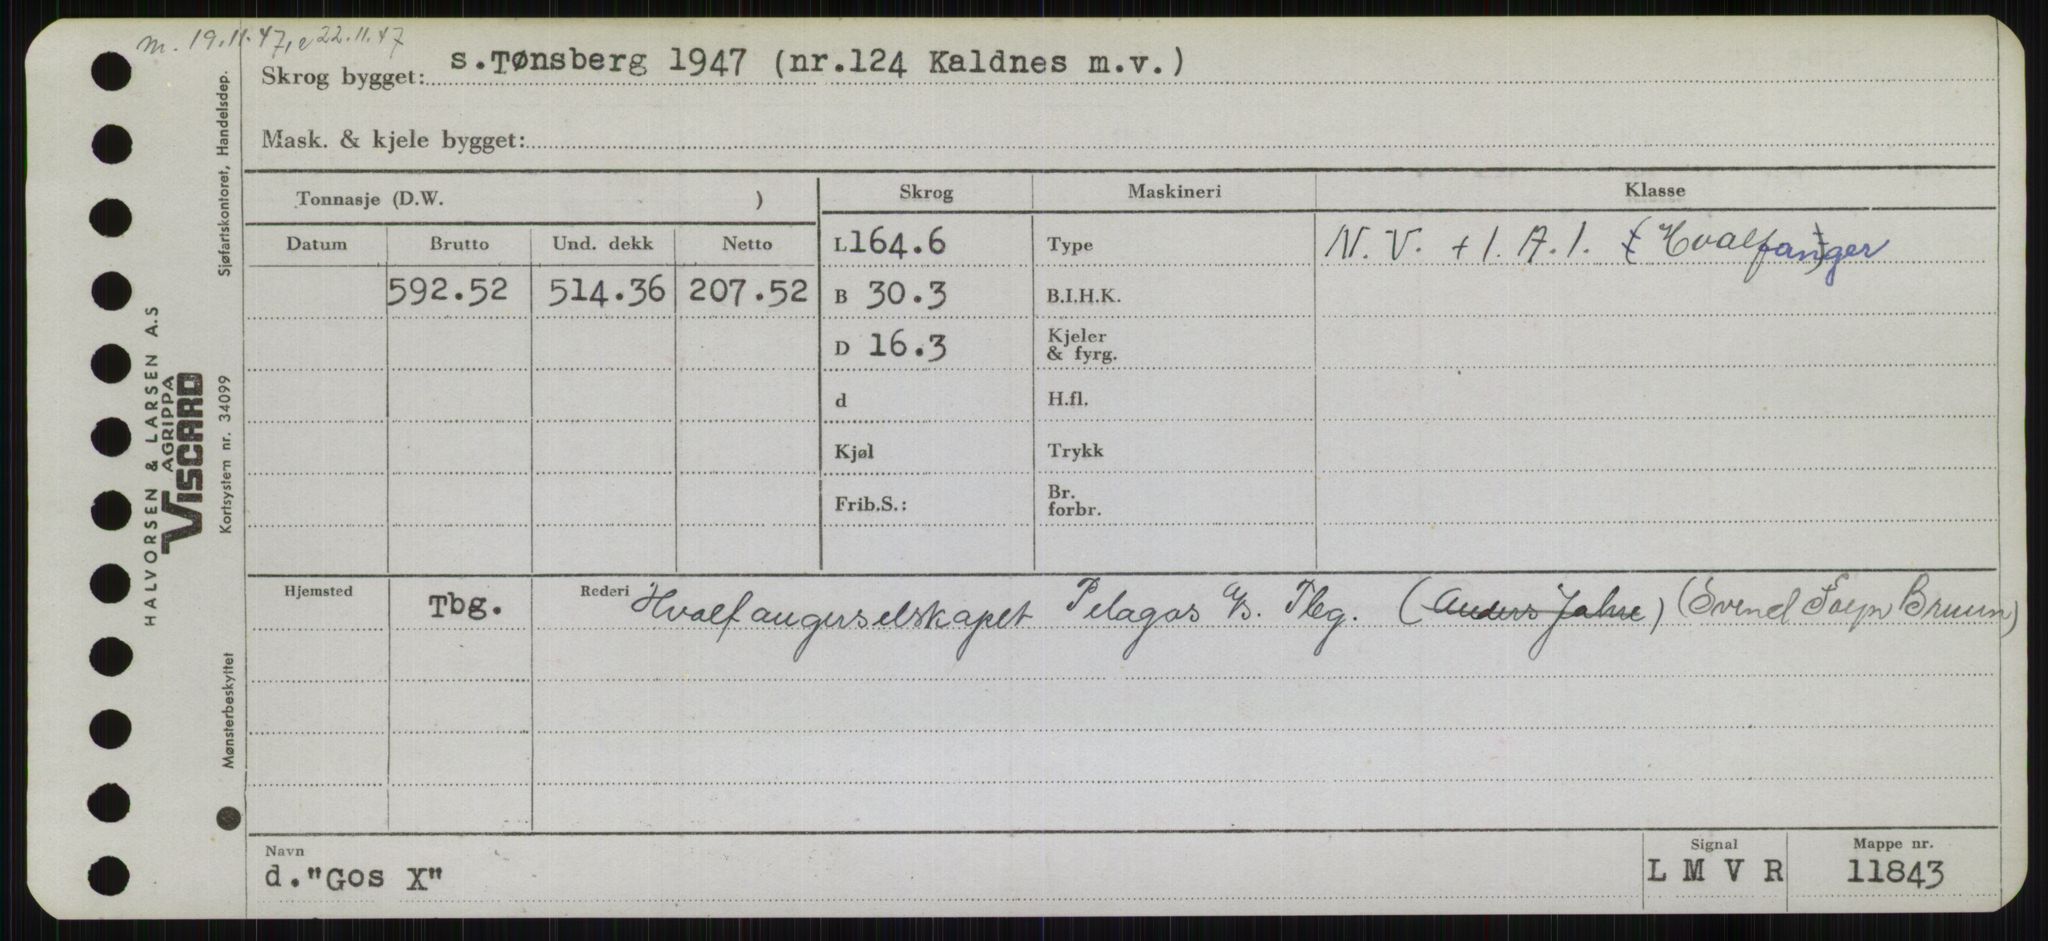 m. 19.11.47, e 22.11.47
Skrog bygget: s.Tønsberg 1947 (nr.124 Kaldnes m.v.)
Mask. & kjele bygget:
Tonnasje (D.W. )
Skrog
Maskineri
Klasse
Datum
Brutto
Und. dekk
Netto
592.52
514.36
207.52
L 164.6
B 30.3
D 16.3
d
Kjøl
Frib.S.:
Type
B.I.H.K.
Kjeler
& fyrg.
H.fl.
Trykk
Br.
forbr.
N.V. + 1.A.1. (Hvalfanger
Hjemsted
Tbg.
Rederi
Hvalfangerselskapet Pelagos a/s. Tbg. (Anders Jahre) (Svend Foyn Bruun)
Navn
d."Gos X"
Signal
L M V R
Mappe nr.
11843
HALVORSEN & LARSEN A.S
AGRIPPA
VISCARD
Sjøfartskontoret, Handelsdep.
Kortsystem nr. 34099
Mønsterbeskyttet